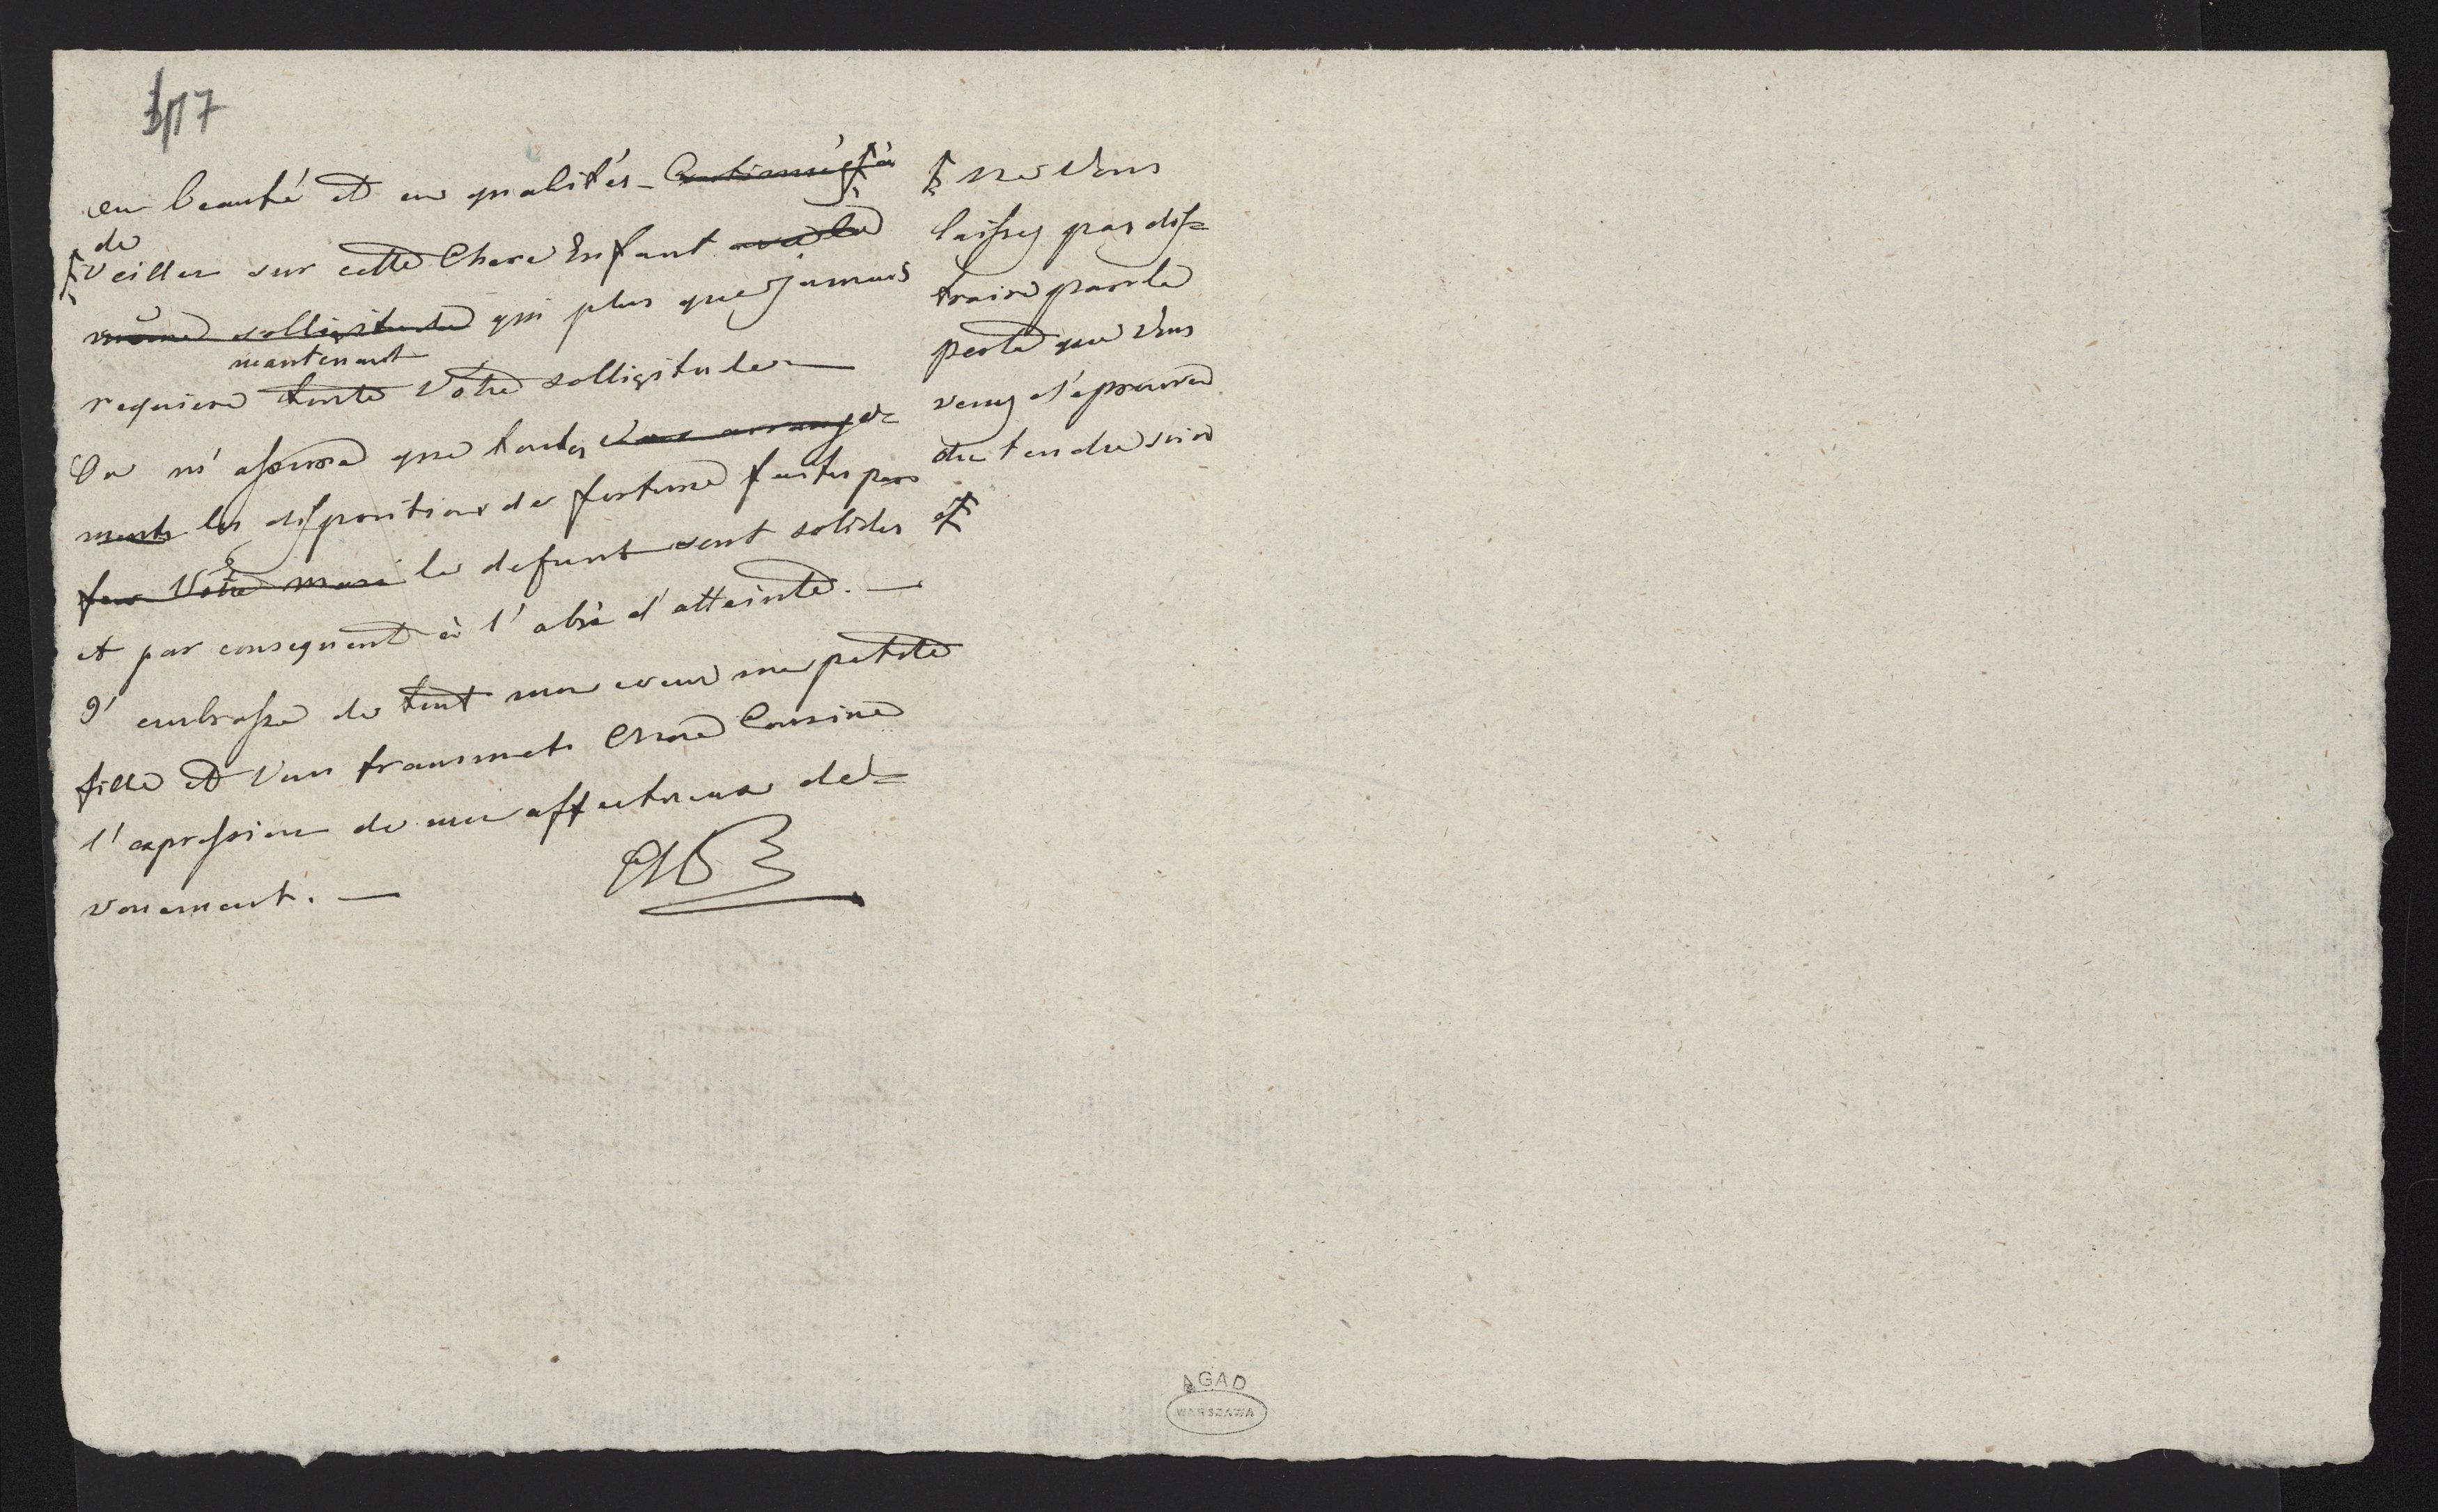 117
en beauté et en qualités - Continués à
de
veiller sur cette Chere Enfant avec la
même solligitude qui plus que jamais
maintenant
requiere toute Votre solligitude —
On m'assure que toutes vos arrange=
ments les dispositions de fortune faites par
feu Votre mari le defunt sont solides
et par consequent à l'abri d'atteinte. —
J'embrasse de tout mon coeur ma petite
fille et Vous transmets Chere Cousine
l'expression de mon affectueux de=
vouement. —
ne Vous
laissez pas dis=
traire par la
perte que Vous
venez d'éprouver
du tendre soin
AGAD
WARSZAWA